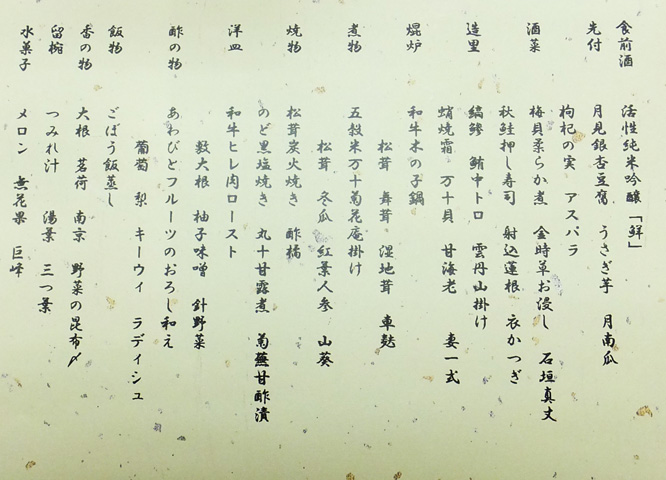 食前酒 活性純米吟醸「鮮」
先付 月見銀杏豆腐 うさぎ芋 月南瓜
枸杞の実 アスパラ
酒菜 梅貝柔らか煮 金時草お浸し 石垣真丈
秋鮭押し寿司 射込蓮根 衣かつぎ
造里 鎬鯵 鮪中トロ 雲丹山掛け
蛸焼霜 万十貝 甘海老 妻一式
焜炉 和牛木の子鍋
松茸 舞茸 湿地茸 車麩
煮物 五穀米万十菊花庵掛け
松茸 冬瓜 紅葉人参 山葵
焼物 松茸炭火焼き 酢橘
のど黒塩焼き 丸十甘露煮 菊蕪甘酢漬
洋皿 和牛ヒレ肉ロースト
数大根 柚子味噌 針野菜
酢の物 あわびとフルーツのおろし和え
葡萄 梨 キーウィ ラディシュ
飯物 ごぼう飯蒸し
香の物 大根 茗荷 南京 野菜の昆布〆
留椀 つみれ汁 湯葉 三つ葉
水菓子 メロン 無花果 巨峰